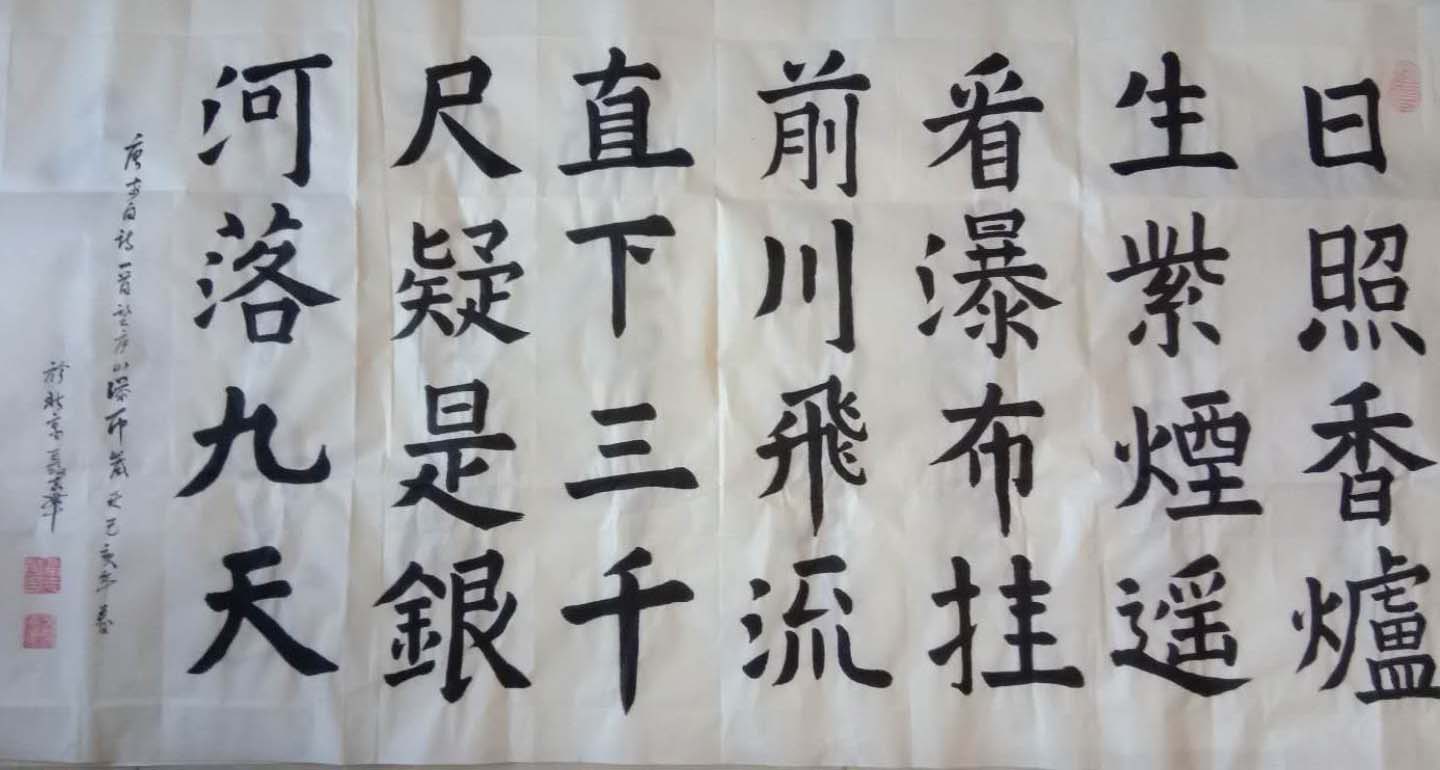 日照香爐
生紫煙遥
看瀑布挂
前川飛流
直下三千
尺疑是銀
河落九天
唐李白詩一首望庐山瀑布歲次己亥年春
於北京聂云華